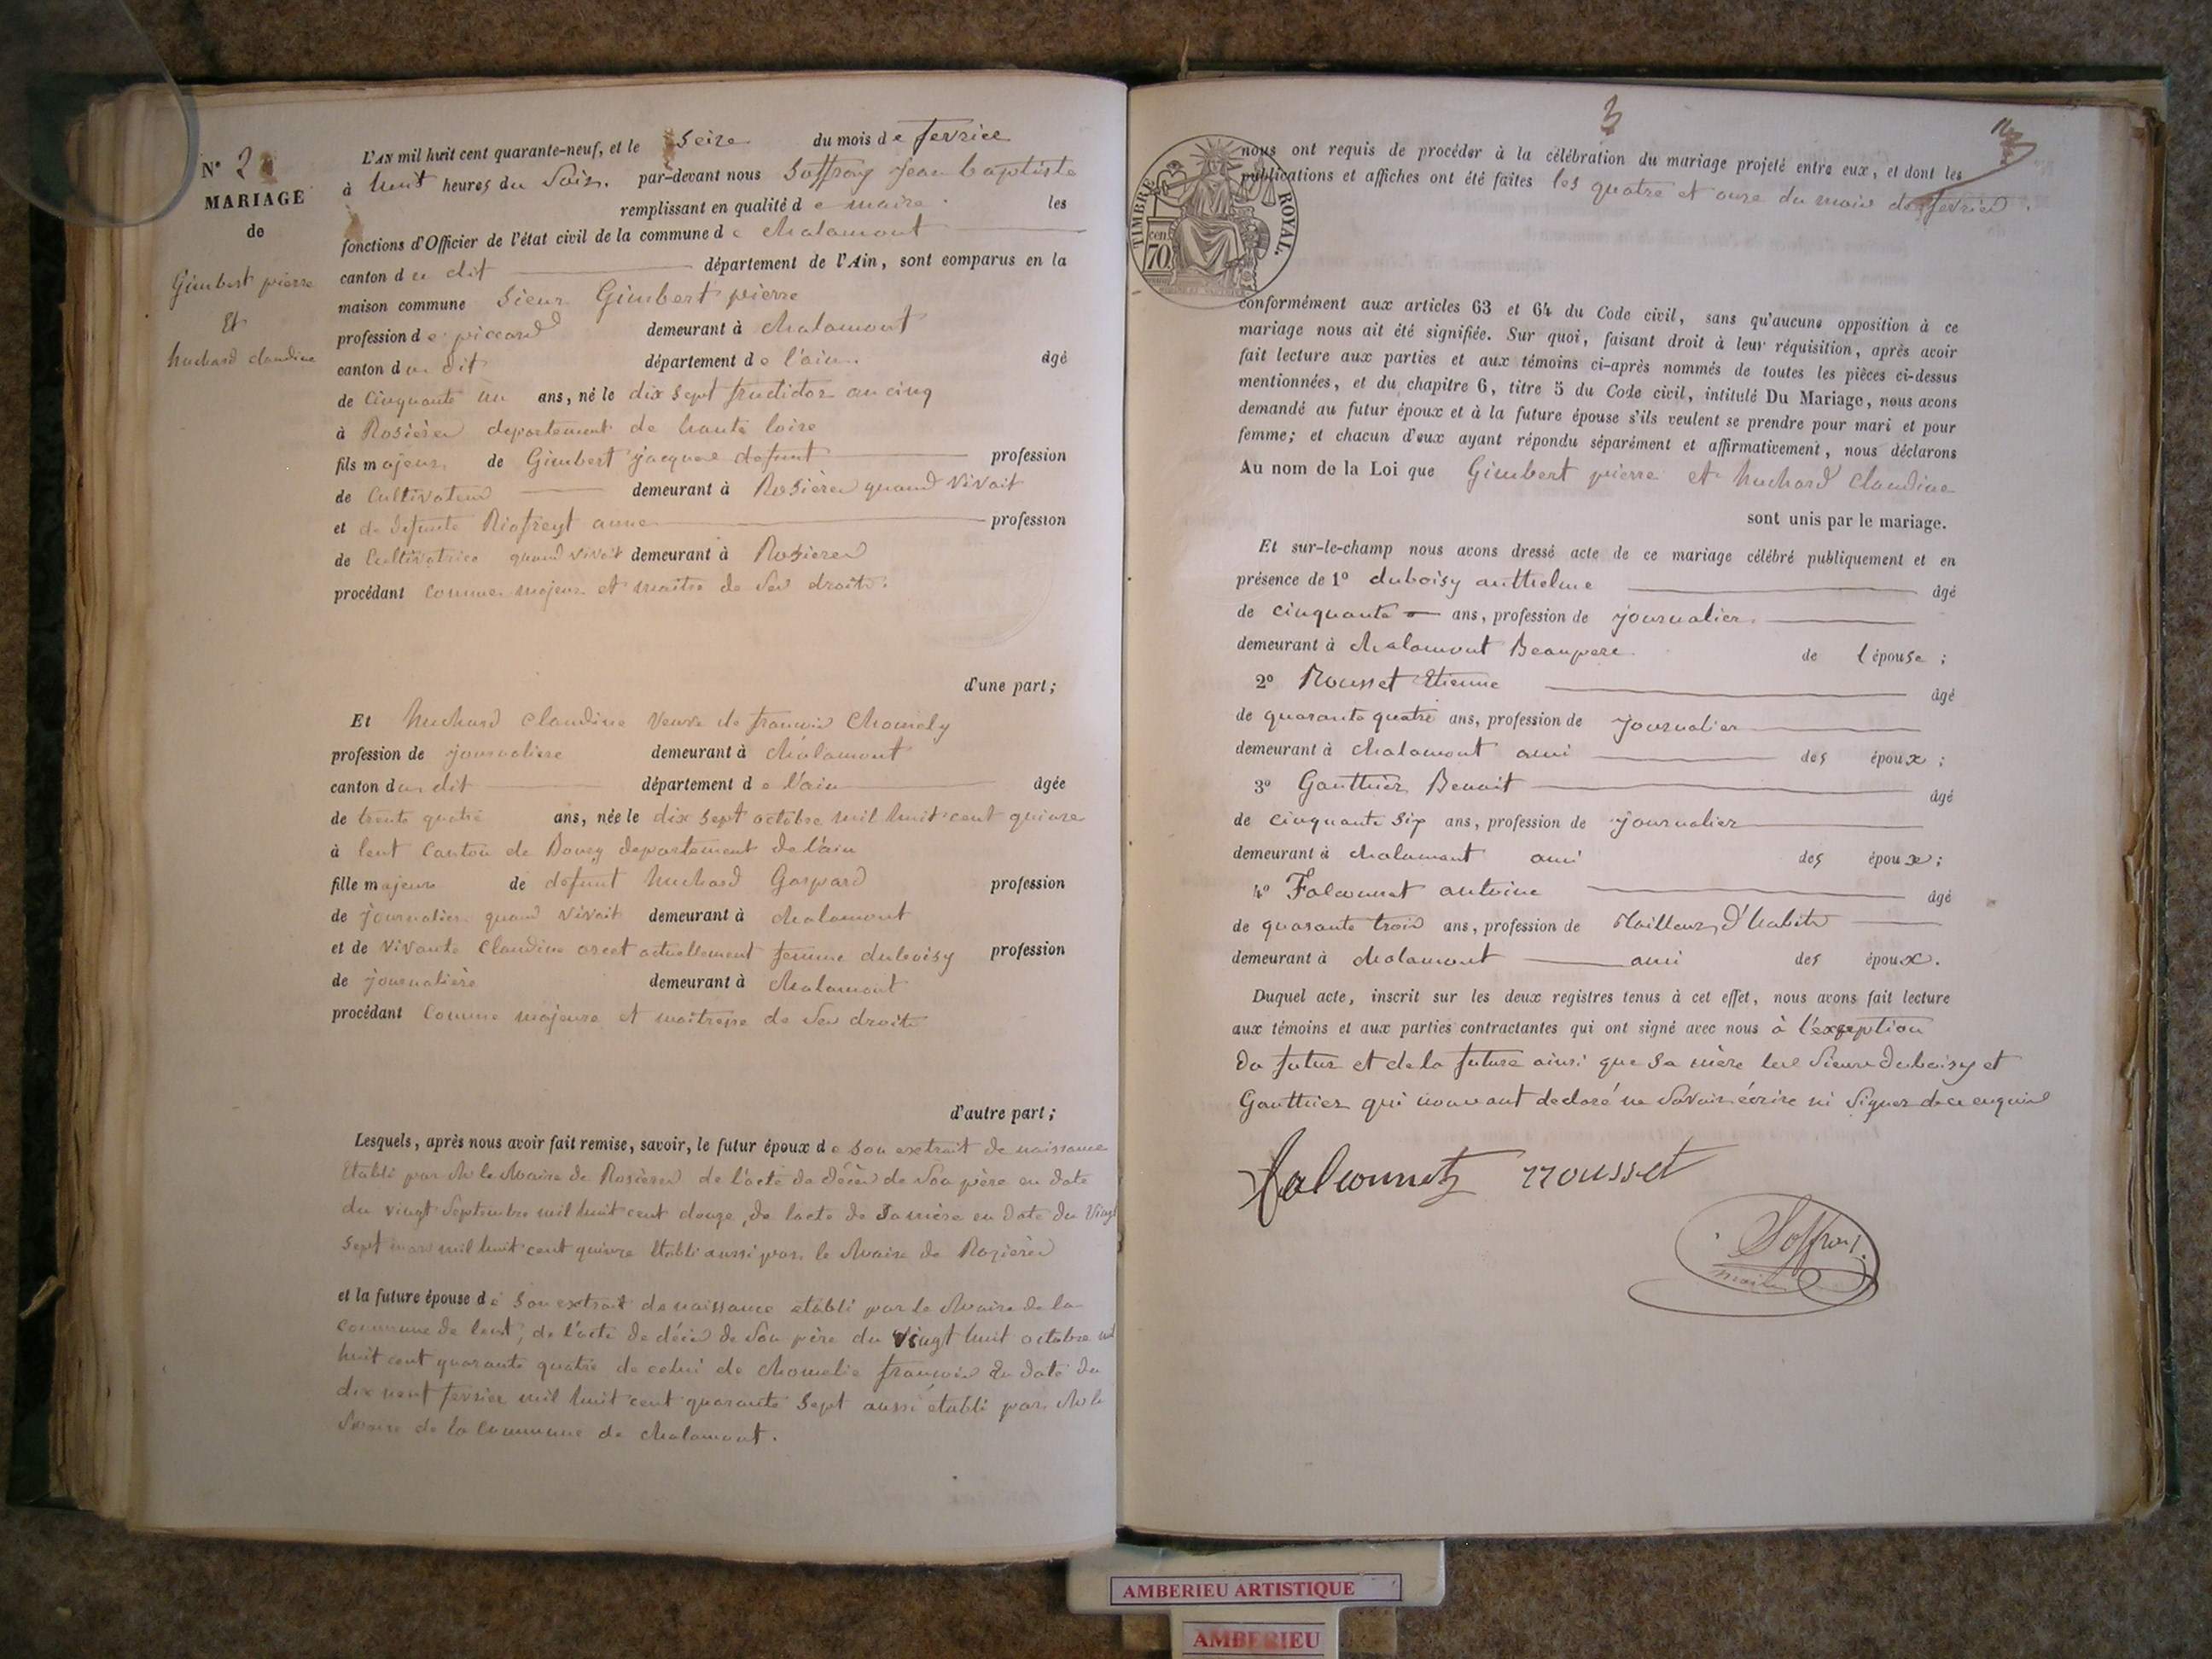 N° 2
MARIAGE
de
Gimbert pierre
Et
huchard claudine
L'AN mil huit cent quarante-neuf, et le seize du mois de fevrier
à huit heures du Soir. par-devant nous Soffray Jean baptiste
remplissant en qualité de maire. les
fonctions d'Officier de l'état civil de la commune de chalamont
canton du dit département de l'Ain, sont comparus en la
maison commune Sieur Gimbert pierre
profession de piccard demeurant à chalamont
canton du dit département de l'ain. âgé
de Cinquante un ans, né le dix sept fructidor an cinq
à Rosières departement de haute loire
fils majeur de Gimbert jacques defunt profession
de Cultivateur demeurant à Rosières quand vivait
et de defunte Riofreyt anne profession
de Cultivatrice quand vivait demeurant à Rosieres
procédant comme majeur et maitre de ses droits.
d'une part;
Et huchard claudine veuve de francois Chomely
profession de journaliere demeurant à chalamont
canton du dit département de l'ain âgée
de trente quatre ans, née le dix sept octobre mil huit cent quinze
à lent Canton de Bourg departement de l'ain
fille majeure de defunt huchard Gaspard profession
de journalier quand vivait demeurant à chalamont
et de vivante Claudine orcet actuellement femme duboisy profession
de journalière demeurant à chalamont
procédant Comme majeure et maitresse de ses droits
d'autre part;
Lesquels, après nous avoir fait remise, savoir, le futur époux de son extrait de naissance
Etabli par Mr le Maire de Rosieres de l'acte de décès de son père en date
du vingt Septembre mil huit cent douze, de lacte de Samère en date du Vingt
sept mars mil huit cent quinze Etabli aussi par le Maire de Rozières
et la future épouse de son extrait de naissance établi par le Maire de la
commune de lent, de l'acte de décès de Son père du vingt huit octobre mil
huit cent quarante quatre de celui de Chomelie francois En date du
dix neuf fevrier mil huit cent quarante Sept aussi établi par Mr le
Maire de la Commune de chalamont.
3
TIMBRE ROYAL.
70 cen
nous ont requis de procéder à la célébration du mariage projeté entre eux, et dont les
publications et affiches ont été faites les quatre et onze du mois de fevrier.
conformément aux articles 63 et 64 du Code civil, sans qu'aucune opposition à ce
mariage nous ait été signifiée. Sur quoi, faisant droit à leur réquisition, après avoir
fait lecture aux parties et aux témoins ci-après nommés de toutes les pièces ci-dessus
mentionnées, et du chapitre 6, titre 5 du Code civil, intitulé Du Mariage, nous avons
demandé au futur époux et à la future épouse s'ils veulent se prendre pour mari et pour
femme; et chacun d'eux ayant répondu séparément et affirmativement, nous déclarons
Au nom de la Loi que Gimbert pierre et huchard Claudine
sont unis par le mariage.
Et sur-le-champ nous avons dressé acte de ce mariage célébré publiquement et en
présence de 1° duboisy anthelme âgé
de cinquante ans, profession de journalier
demeurant à chalamont Beaupere de l'épouse;
2° Rousset Etienne âgé
de quarante quatre ans, profession de journalier
demeurant à chalamont ami des époux;
3° Gauthier Benoit âgé
de cinquante six ans, profession de journalier
demeurant à chalamont ami des époux;
4° Falconnet antoine âgé
de quarante trois ans, profession de tailleur d'habits
demeurant à chalamont ami des époux.
Duquel acte, inscrit sur les deux registres tenus à cet effet, nous avons fait lecture
aux témoins et aux parties contractantes qui ont signé avec nous à l'exseption
du futur et de la future ainsi que sa mère les Sieurs duboisy et
Gauthier qui nous ont declaré ne savoir écrire ni signer de ce enquis
falconnet rousset
Soffray
maire
AMBERIEU ARTISTIQUE
AMBERIEU